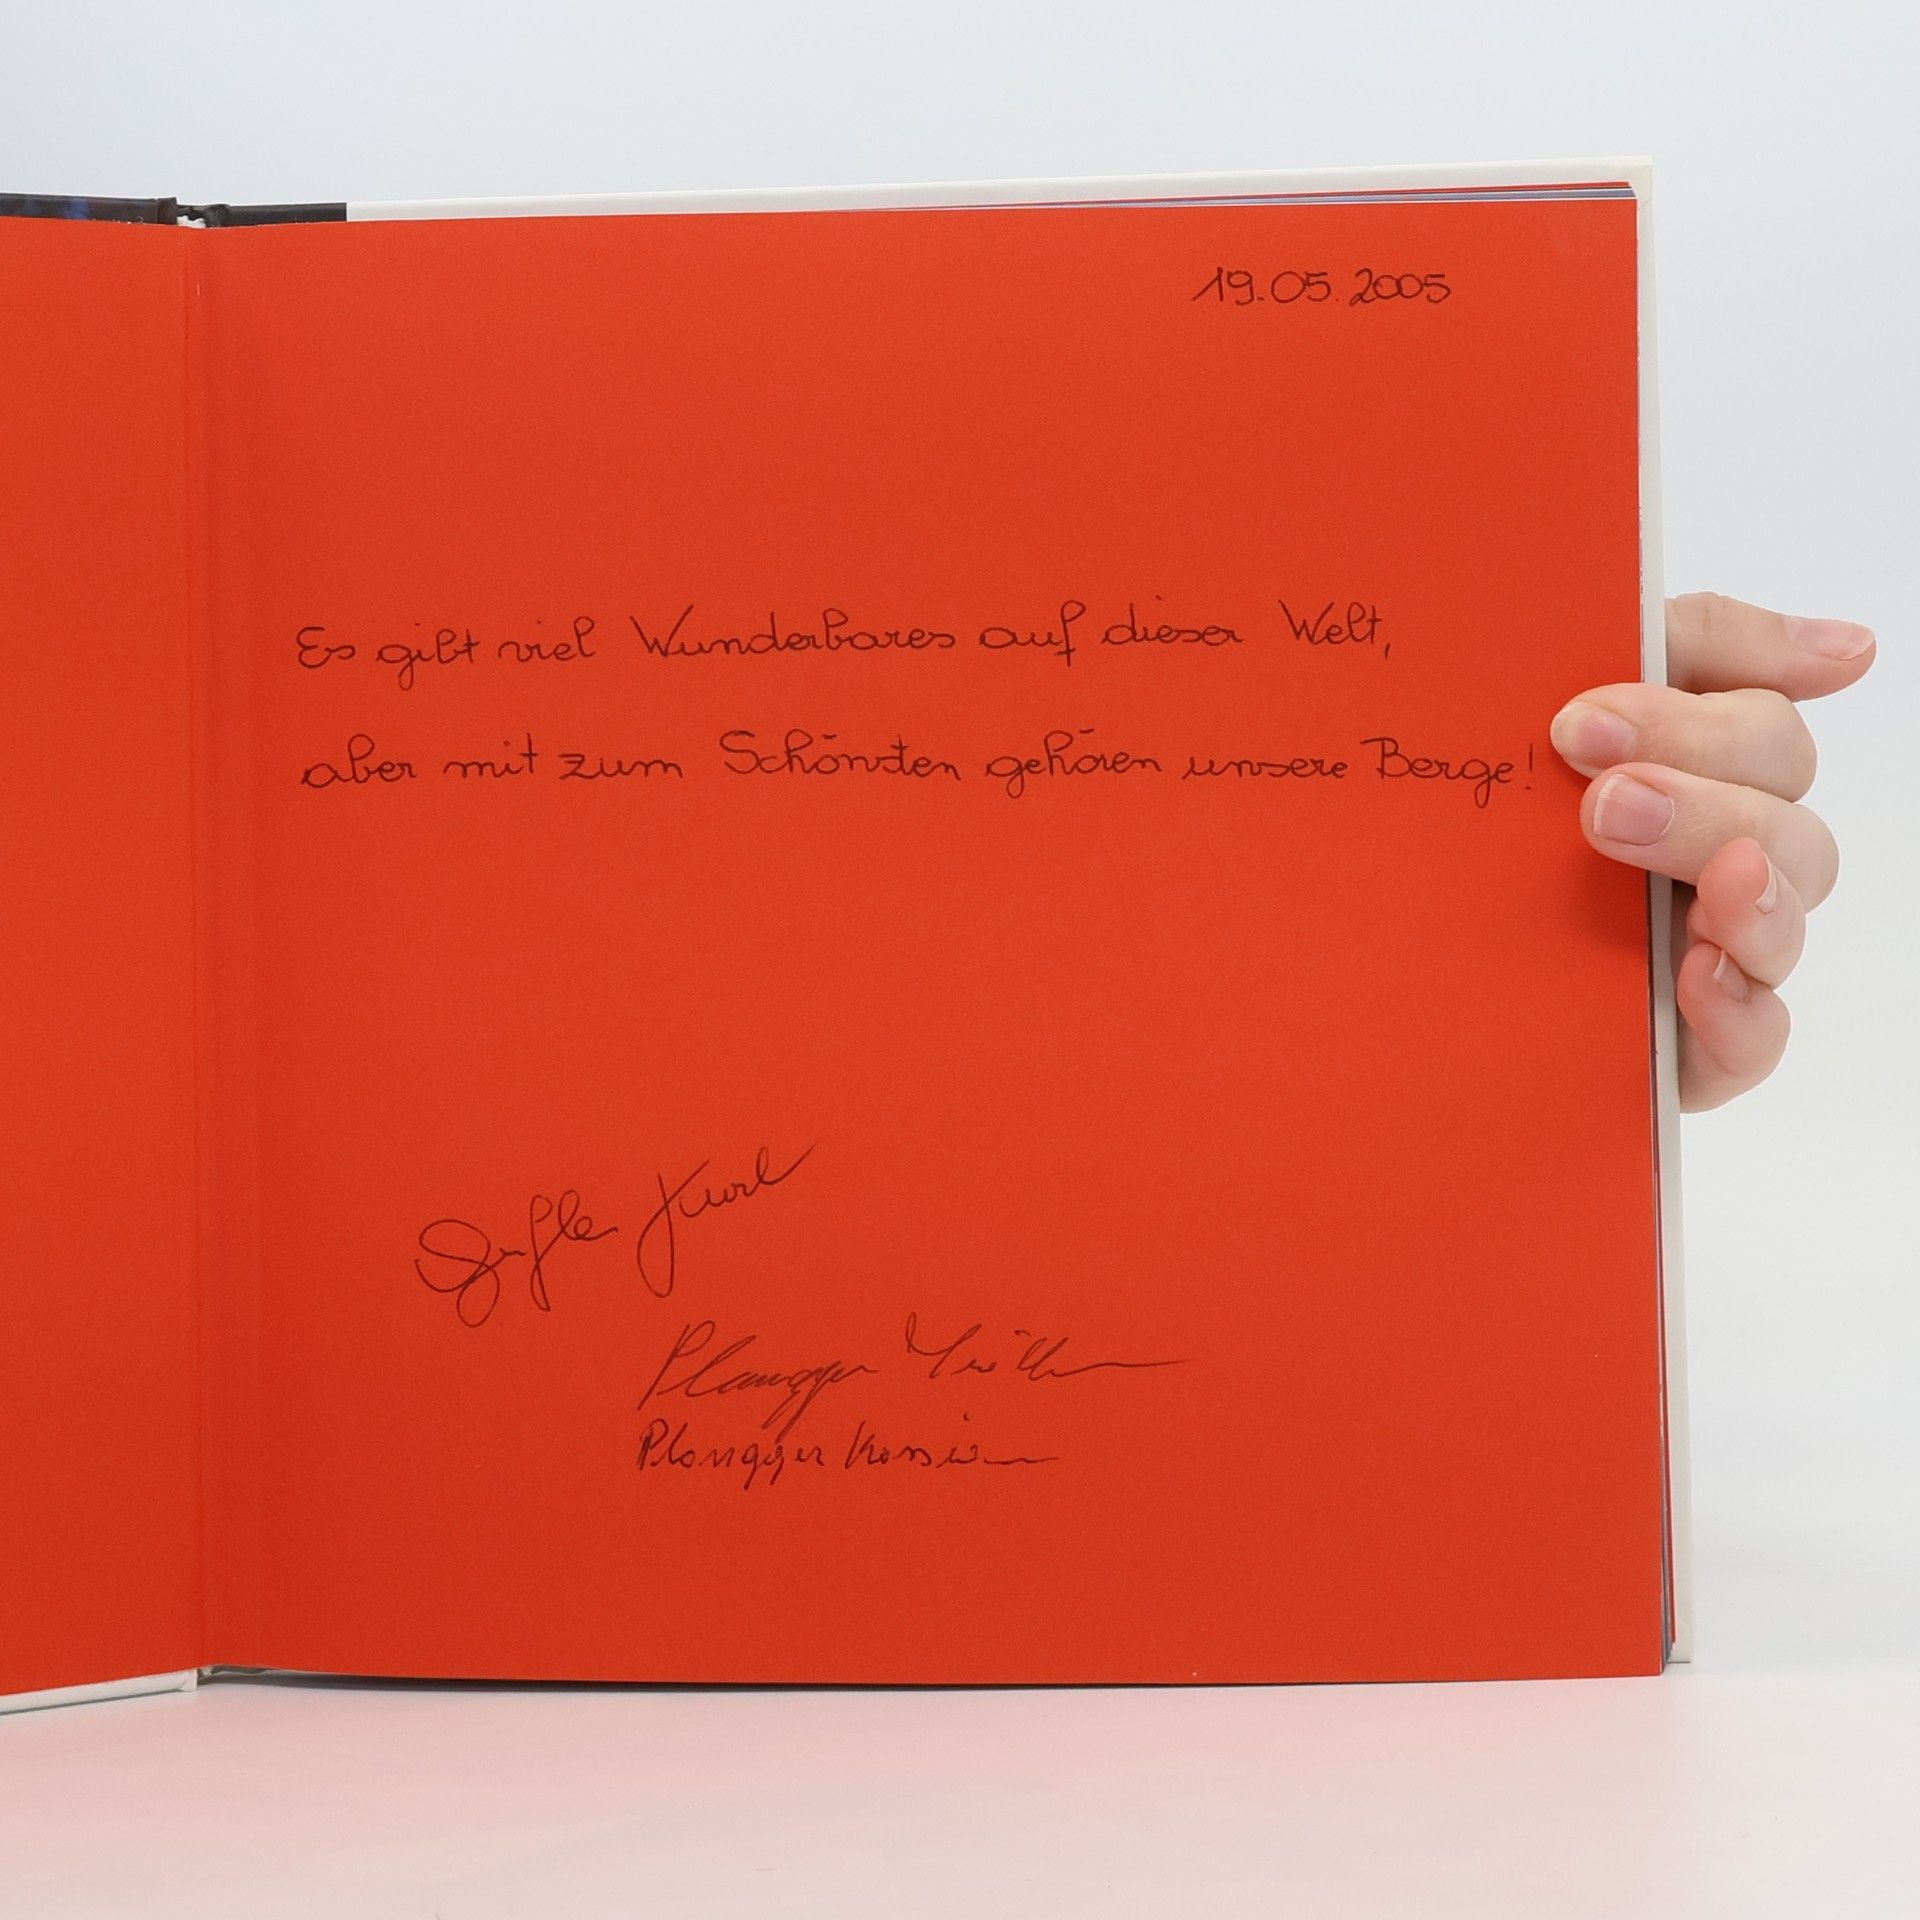 19.05.2005
Es gibt viel Wunderbares auf dieser Welt,
aber mit zum Schönsten gehören unsere Berge!
Kurt
Plangger
Plangger Kassian